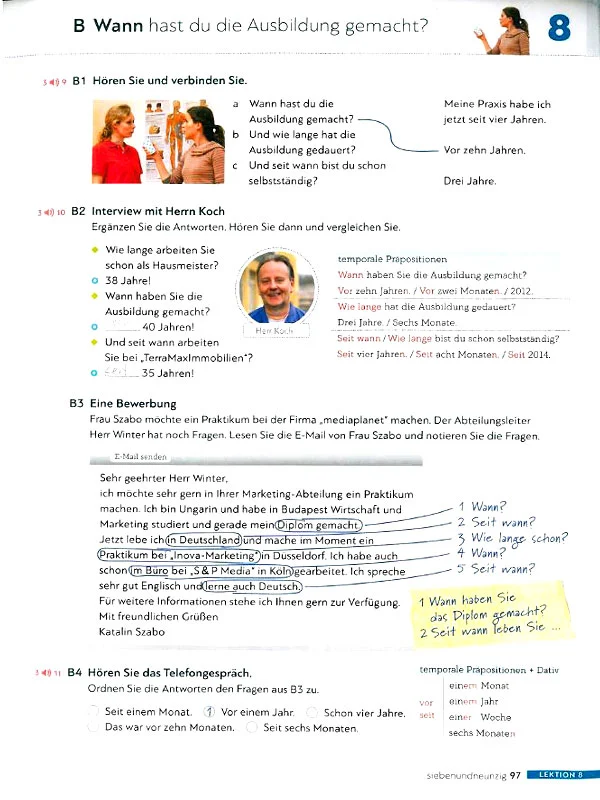 B Wann hast du die Ausbildung gemacht?
8
3 9 B1 Hören Sie und verbinden Sie.
a Wann hast du die
Ausbildung gemacht?
b Und wie lange hat die
Ausbildung gedauert?
c Und seit wann bist du schon
selbstständig?
Meine Praxis habe ich
jetzt seit vier Jahren.
Vor zehn Jahren.
Drei Jahre.
3 10 B2 Interview mit Herrn Koch
Ergänzen Sie die Antworten. Hören Sie dann und vergleichen Sie.
Wie lange arbeiten Sie
schon als Hausmeister?
38 Jahre!
Wann haben Sie die
Ausbildung gemacht?
40 Jahren!
Und seit wann arbeiten
Sie bei „TerraMaxImmobilien“?
35 Jahren!
Herr Koch
temporale Präpositionen
Wann haben Sie die Ausbildung gemacht?
Vor zehn Jahren. / Vor zwei Monaten. / 2012.
Wie lange hat die Ausbildung gedauert?
Drei Jahre. / Sechs Monate.
Seit wann / Wie lange bist du schon selbstständig?
Seit vier Jahren. / Seit acht Monaten. / Seit 2014.
B3 Eine Bewerbung
Frau Szabo möchte ein Praktikum bei der Firma „mediaplanet“ machen. Der Abteilungsleiter
Herr Winter hat noch Fragen. Lesen Sie die E-Mail von Frau Szabo und notieren Sie die Fragen.
E-Mail senden
Sehr geehrter Herr Winter,
ich möchte sehr gern in Ihrer Marketing-Abteilung ein Praktikum
machen. Ich bin Ungarin und habe in Budapest Wirtschaft und
Marketing studiert und gerade mein Diplom gemacht.
Jetzt lebe ich in Deutschland und mache im Moment ein
Praktikum bei „Inova-Marketing“ in Düsseldorf. Ich habe auch
schon im Büro bei „S & P Media“ in Köln gearbeitet. Ich spreche
sehr gut Englisch und lerne auch Deutsch.
Für weitere Informationen stehe ich Ihnen gern zur Verfügung.
Mit freundlichen Grüßen
Katalin Szabo
1 Wann?
2 Seit wann?
3 Wie lange schon?
4 Wann?
5 Seit wann?
1 Wann haben Sie
das Diplom gemacht?
2 Seit wann leben Sie ...
3 11 B4 Hören Sie das Telefongespräch.
Ordnen Sie die Antworten den Fragen aus B3 zu.
Seit einem Monat. 1 Vor einem Jahr. Schon vier Jahre.
Das war vor zehn Monaten. Seit sechs Monaten.
temporale Präpositionen + Dativ
einem Monat
vor einem Jahr
seit einer Woche
sechs Monaten
siebenundneunzig 97 LEKTION 8